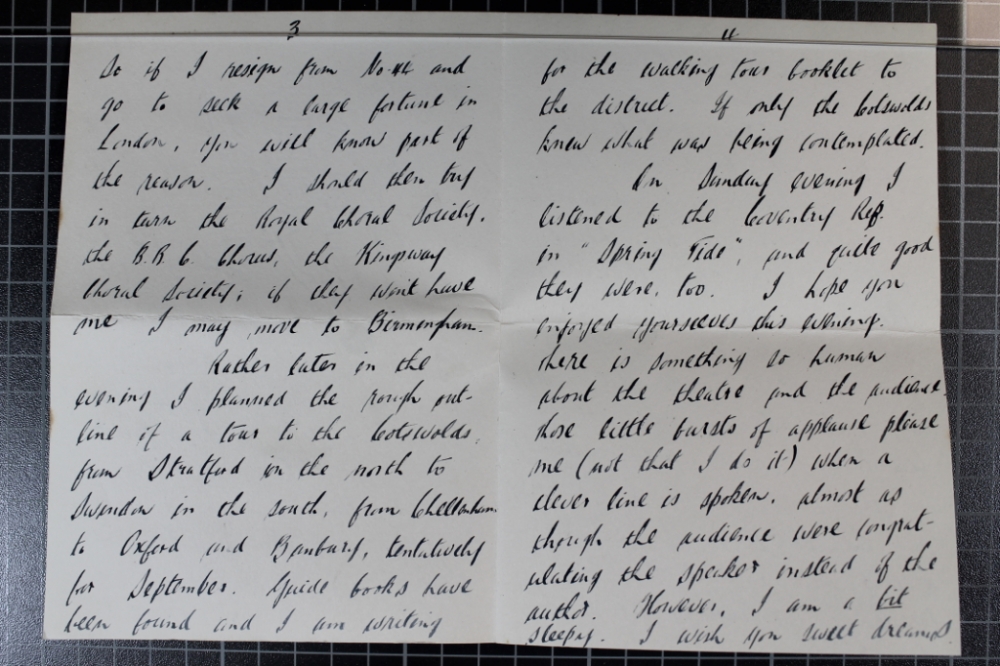 3
So if I resign from No. and
go to seek a large fortune in
London, you will know part of
the reason. I should then try
in turn the Royal Choral Society,
the B.B.C. Chorus, the Kingsway
Choral Society; if they won't have
me I may move to Birmingham.
Rather later in the
evening I planned the rough out-
line of a tour to the Cotswolds,
from Stratford in the north to
Swindon in the south, from Cheltenham
to Oxford and Banbury, tentatively
for September. Guide books have
been found and I am writing
4
for the walking tour booklet to
the district. If only the Cotswolds
knew what was being contemplated.
On Sunday evening I
listened to the Coventry Rep.
in "Spring Tide", and quite good
they were, too. I hope you
enjoyed yourselves this evening.
There is something so human
about the theatre and the audience.
Those little bursts of applause please
me (not that I do it) when a
clever line is spoken, almost as
though the audience were congrat-
ulating the speaker instead of the
author. However, I am a bit
sleepy. I wish you sweet dreams.